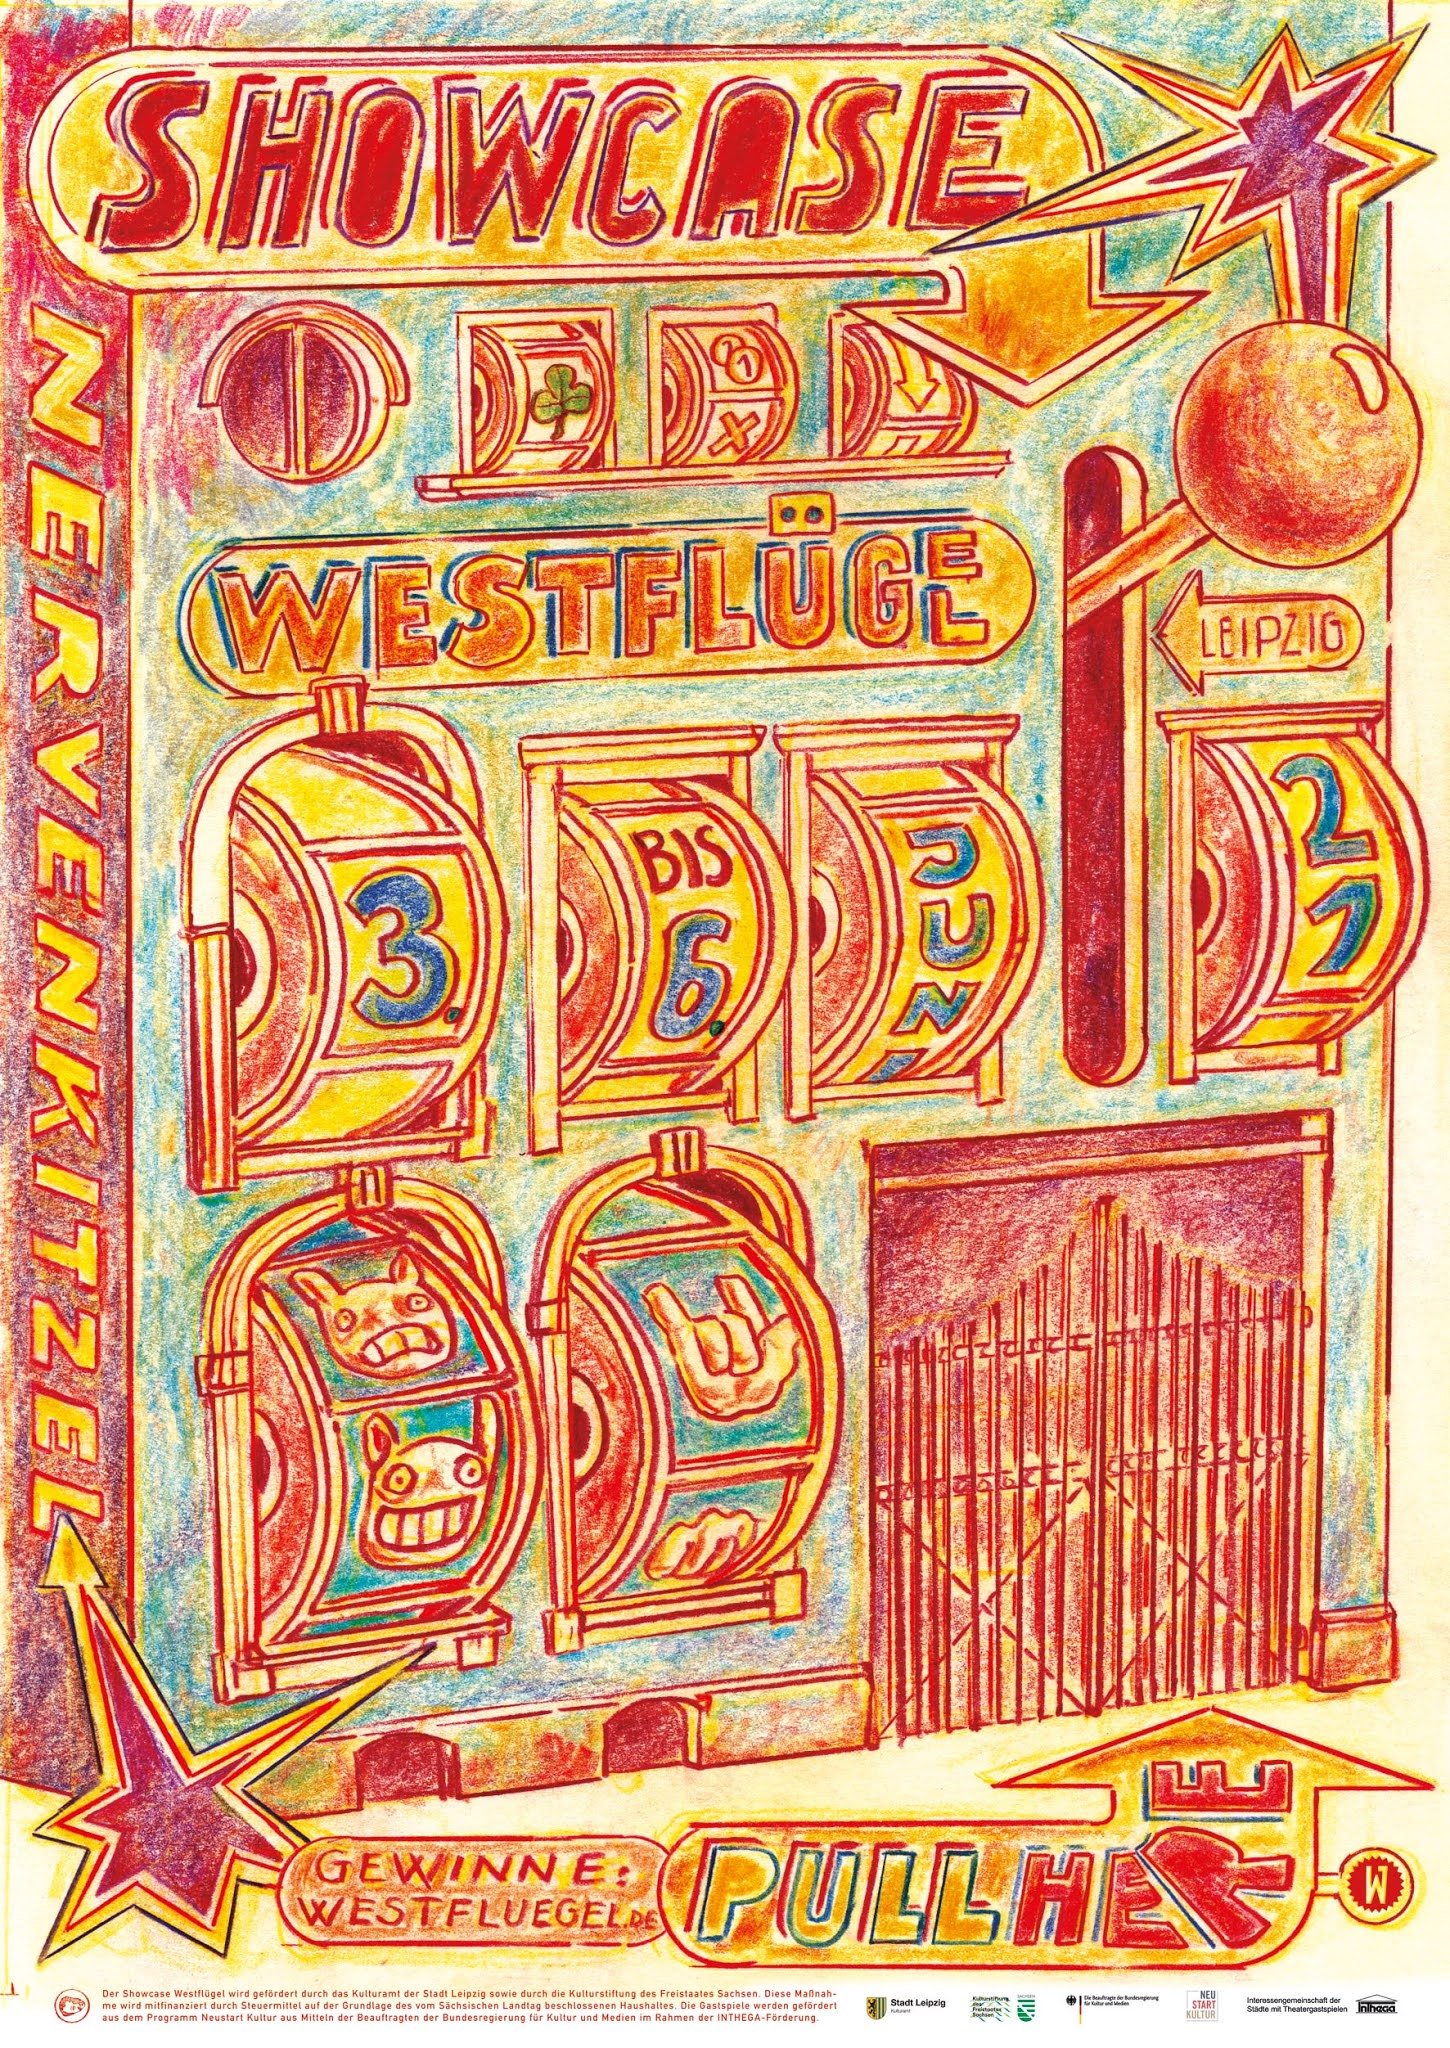 SHOWCASE
WESTFLÜGEL
LEIPZIG
NERVENKITZEL
3.
BIS
6.
JUNI
21
GEWINNE:
WESTFLUEGEL.DE
PULL HERE
W
Der Showcase Westflügel wird gefördert durch das Kulturamt der Stadt Leipzig sowie durch die Kulturstiftung des Freistaates Sachsen. Diese Maßnah-
me wird mitfinanziert durch Steuermittel auf der Grundlage des vom Sächsischen Landtag beschlossenen Haushaltes. Die Gastspiele werden gefördert
aus dem Programm Neustart Kultur aus Mitteln der Beauftragten der Bundesregierung für Kultur und Medien im Rahmen der INTHEGA-Förderung.
Stadt Leipzig
Kulturamt
Kulturstiftung
des
Freistaates
Sachsen
SACHSEN
Die Beauftragte der Bundesregierung
für Kultur und Medien
NEU
START
KULTUR
Interessengemeinschaft der
Städte mit Theatergastspielen
Inthega